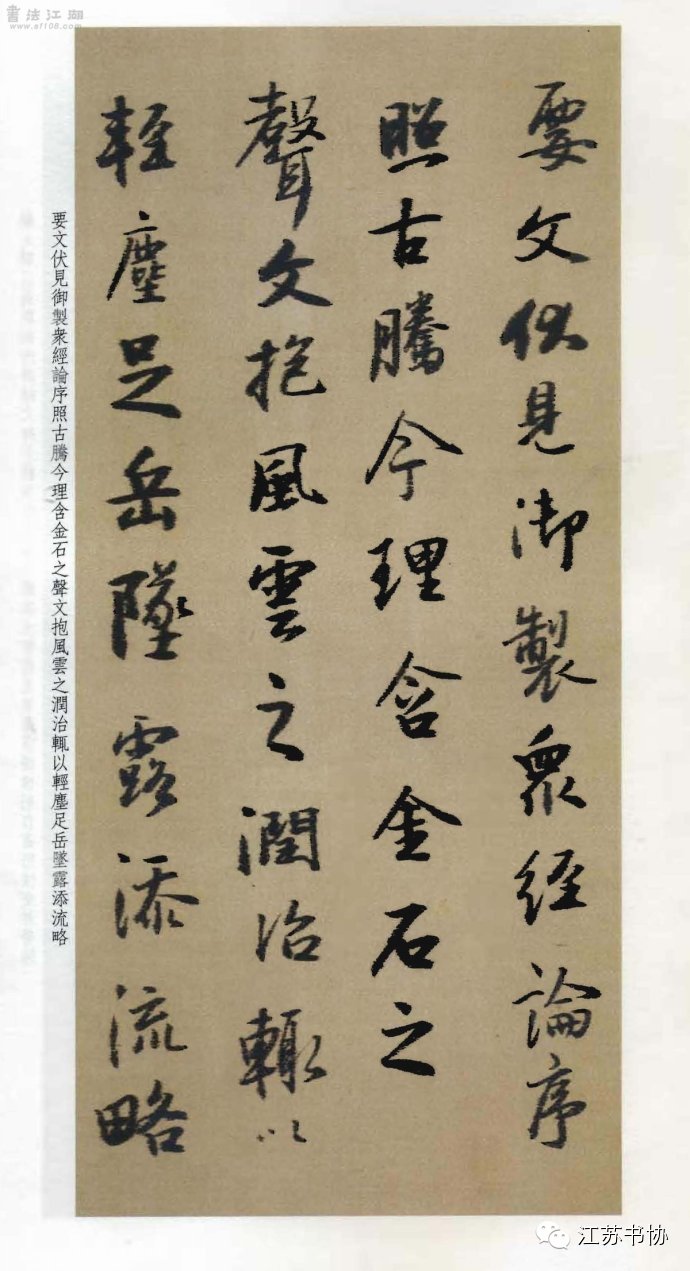 書法江湖
www.sf108.com
要文伏見御製衆經論序
照古騰今理含金石之
聲文抱風雲之潤治輒以
輕塵足岳墜露添流略
要文伏見御製衆經論序照古騰今理含金石之聲文抱風雲之潤治輒以輕塵足岳墜露添流略
江苏书协